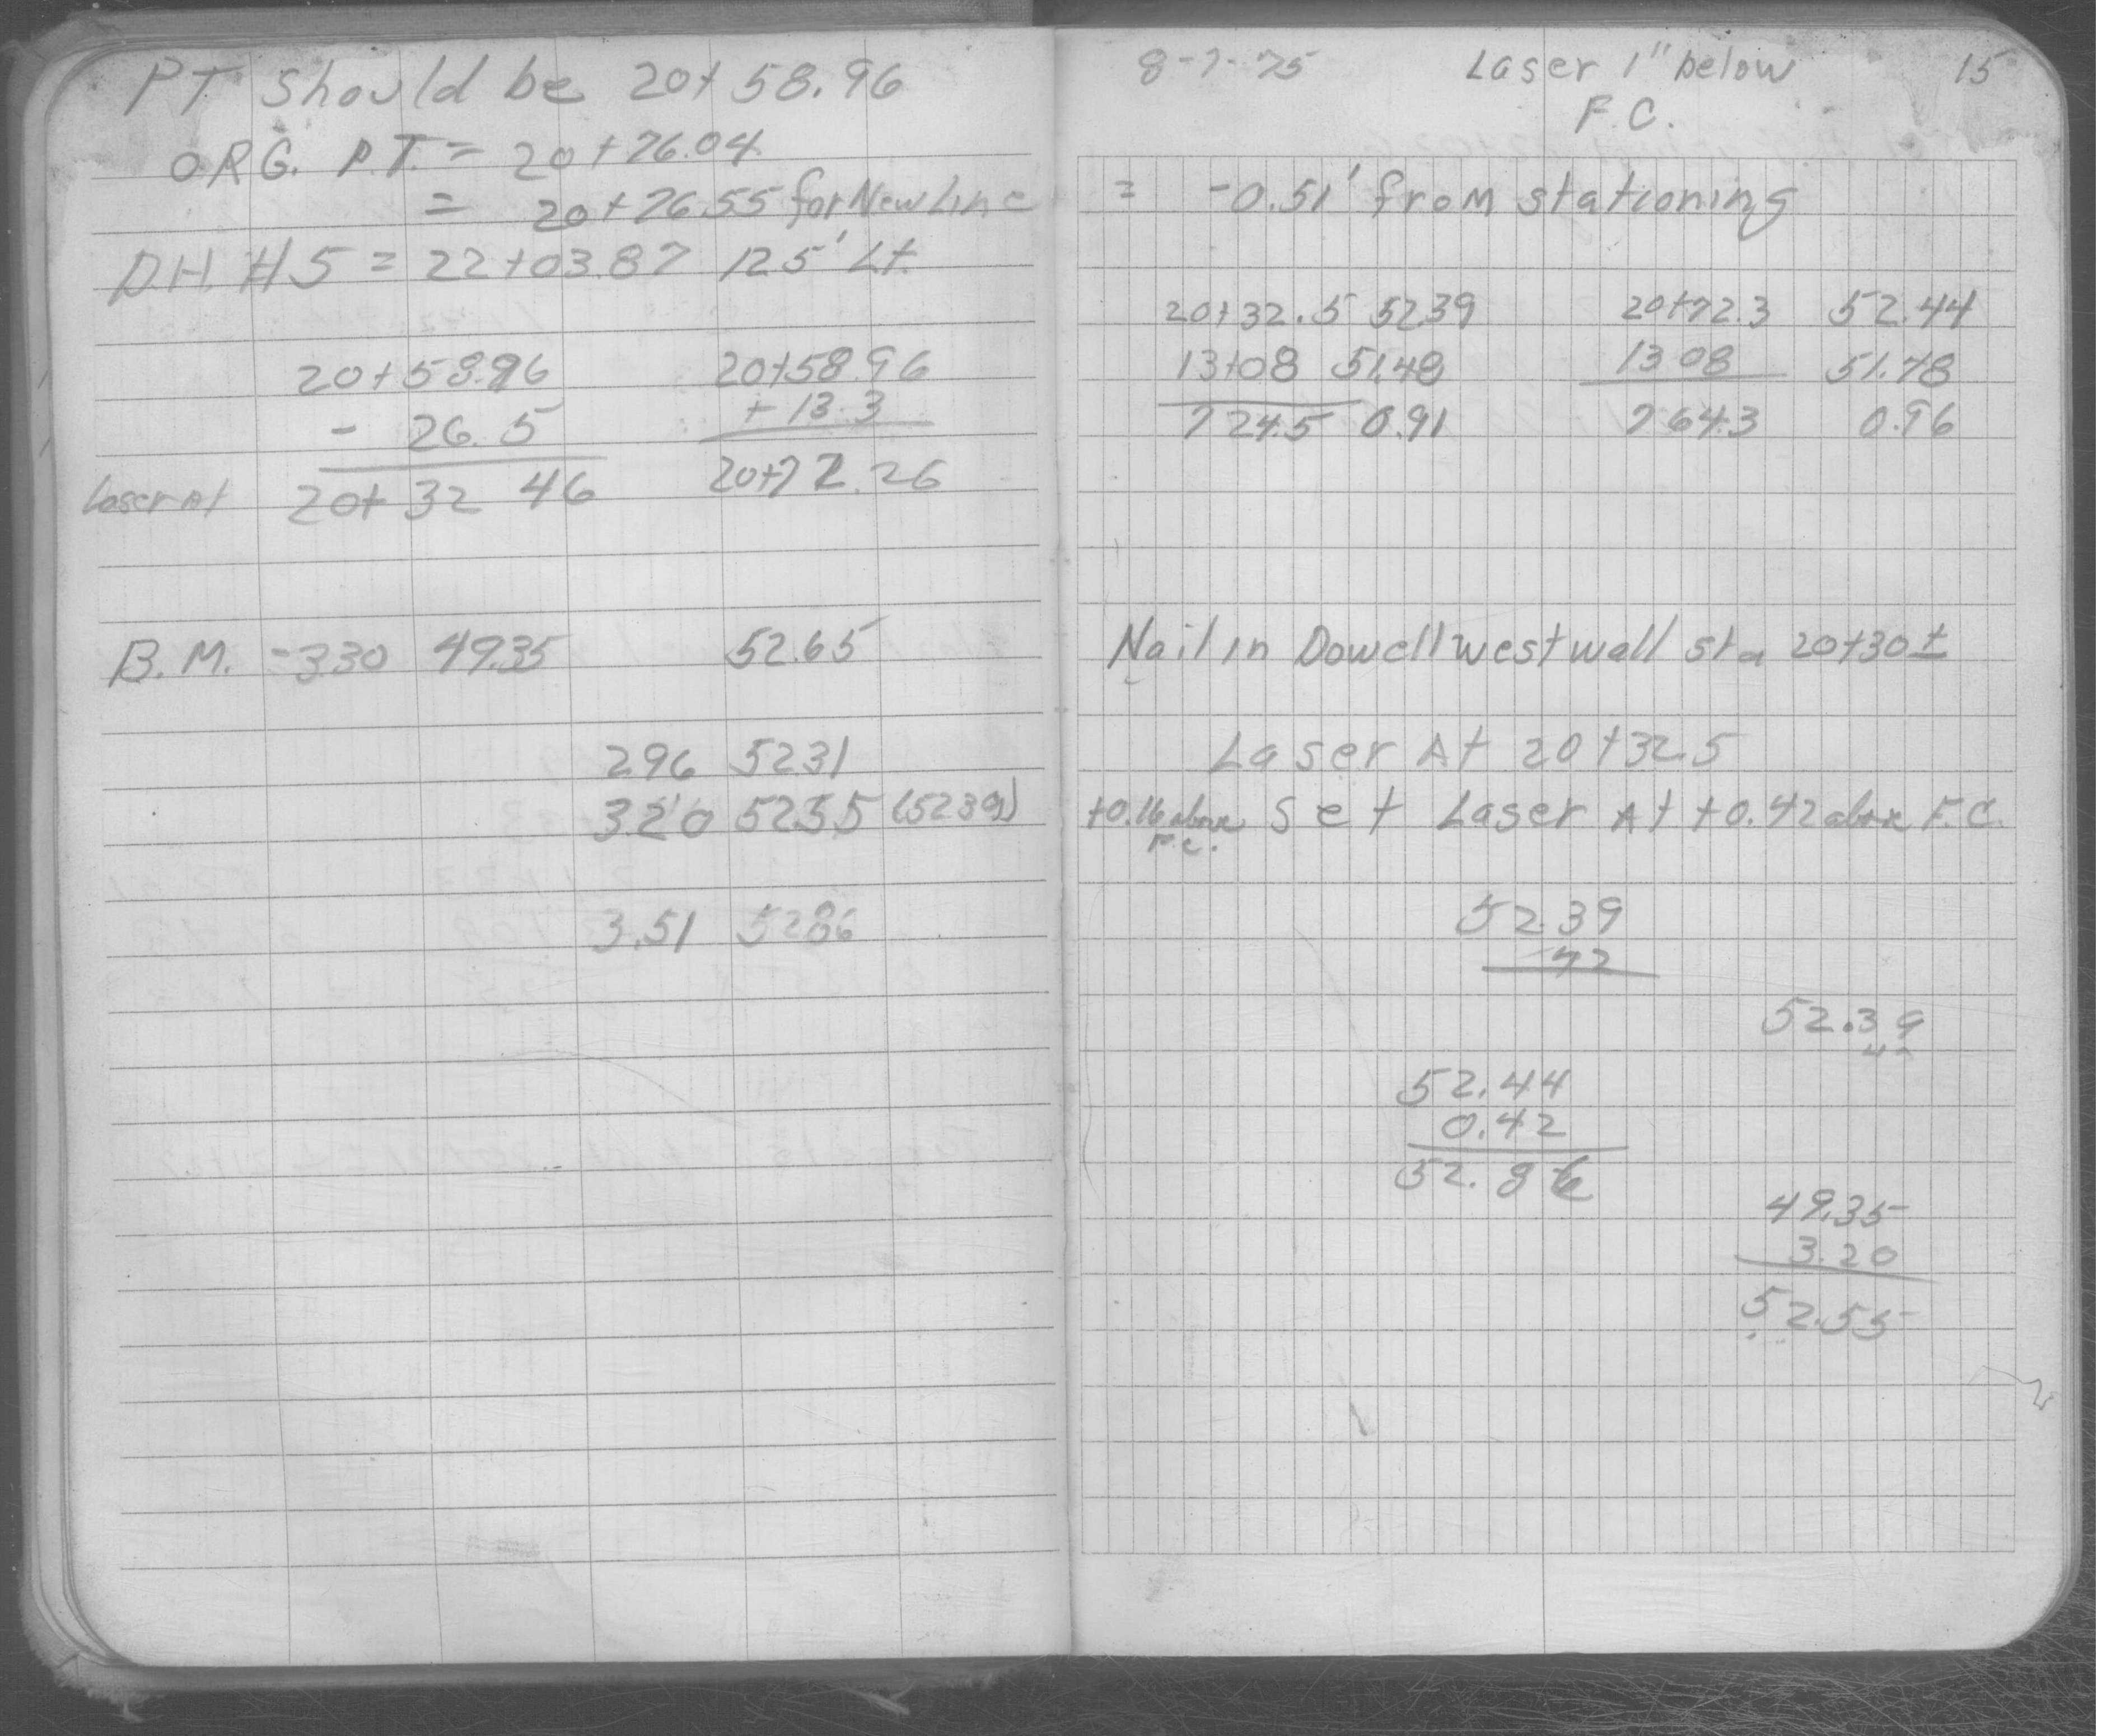 PT should be 20+58.96
ORG. P.T. = 20+76.04
= 20+76.55 for New Line
D.H. #5 = 22+03.87 125' Lt.
20+58.96 20+58.96
- 26.5 + 13.3
Laser At 20+32 46 20+72.26
B.M. -330 4935 52.65
296 5231
320 5255 (5239)
3.51 5286
8-7-75 Laser 1" below 15
F.C.
= -0.51' from stationing
20+32.5 5239 20+72.3 52.44
13+08 51.48 1308 51.78
724.5 0.91 764.3 0.96
Nail in Dowell west wall sta 20+30±
Laser At 20+32.5
+0.16 above Set Laser At +0.42 above F.C.
F.C.
52.39
42
52.39
52.44
0.42
52.86
49.35
3.20
52.55